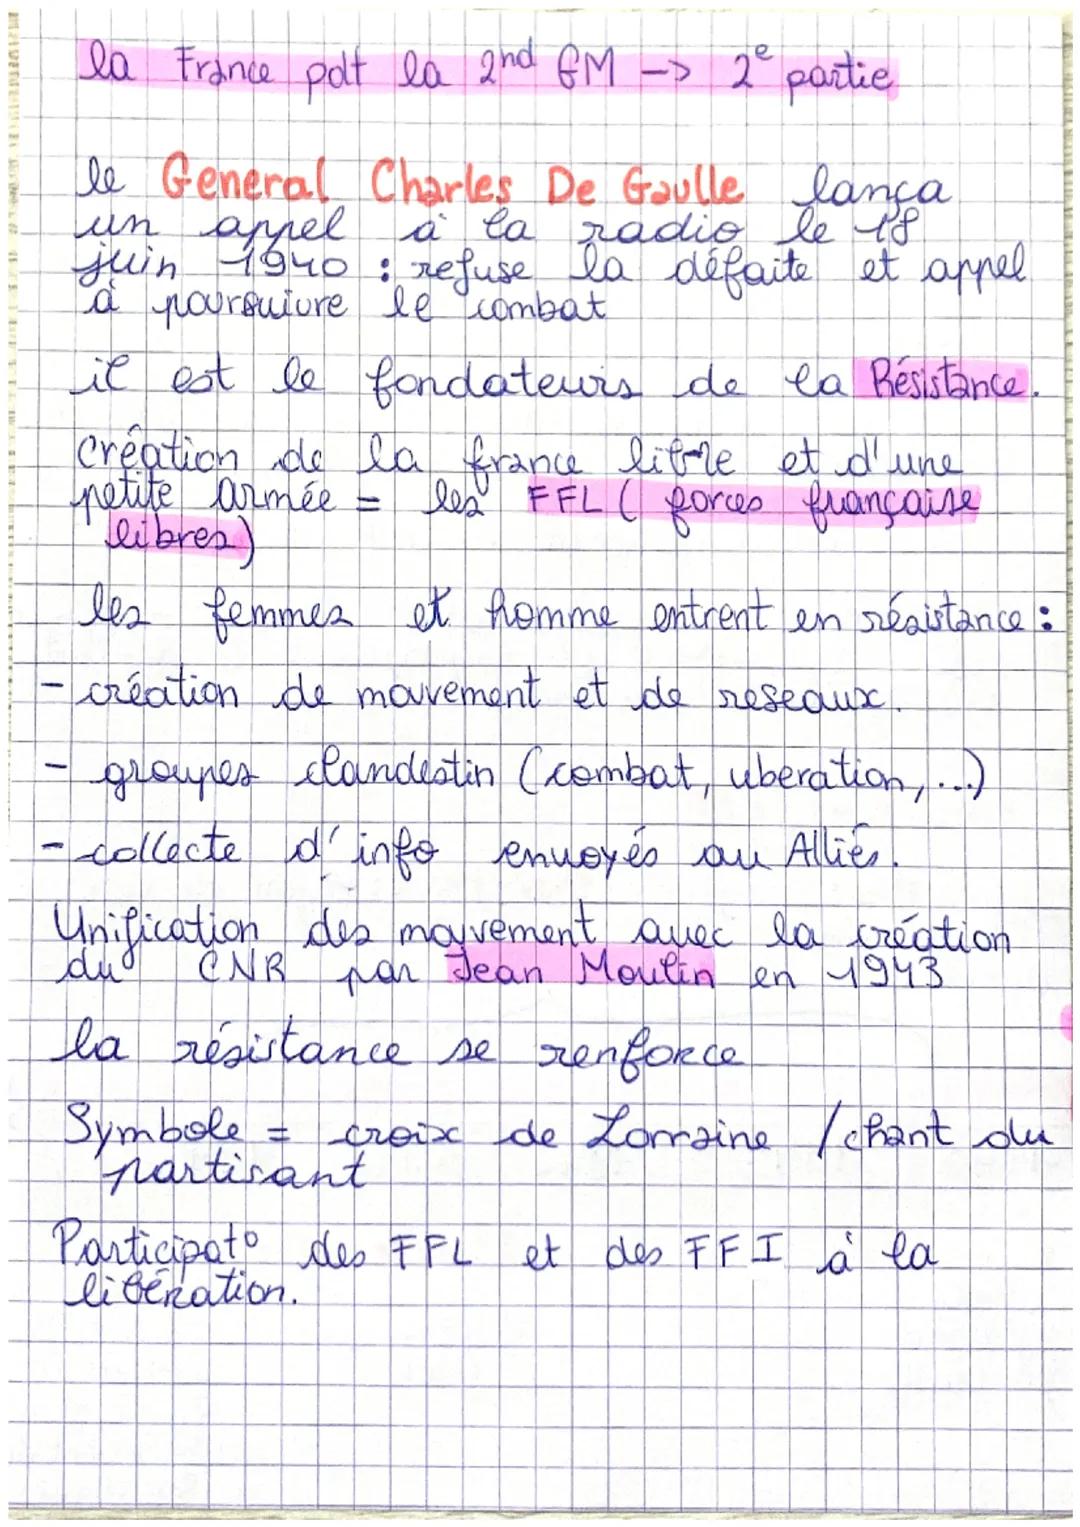 la France pdt la 2nd GM -> 2e partie
le General Charles De Gaulle lança
un appel à la radio le 18
juin 1940 : refuse la défaite et appel
à poursuivre le combat
il est le fondateurs de la Résistance.
création de la france libre et d'une
petite armée = les FFL ( forces française
libres)
les femmes et homme entrent en résistance :
- création de mouvement et de reseaux.
- groupes clandestin (combat, uberation, ...)
- collecte d'info envoyés au Alliés.
Unification des mouvement avec la création
du CNR par Jean Moulin en 1943
la résistance se renforce
Symbole = croix de Lorraine / chant du
partisant
Participato des FFL et des FFI à la
libération.